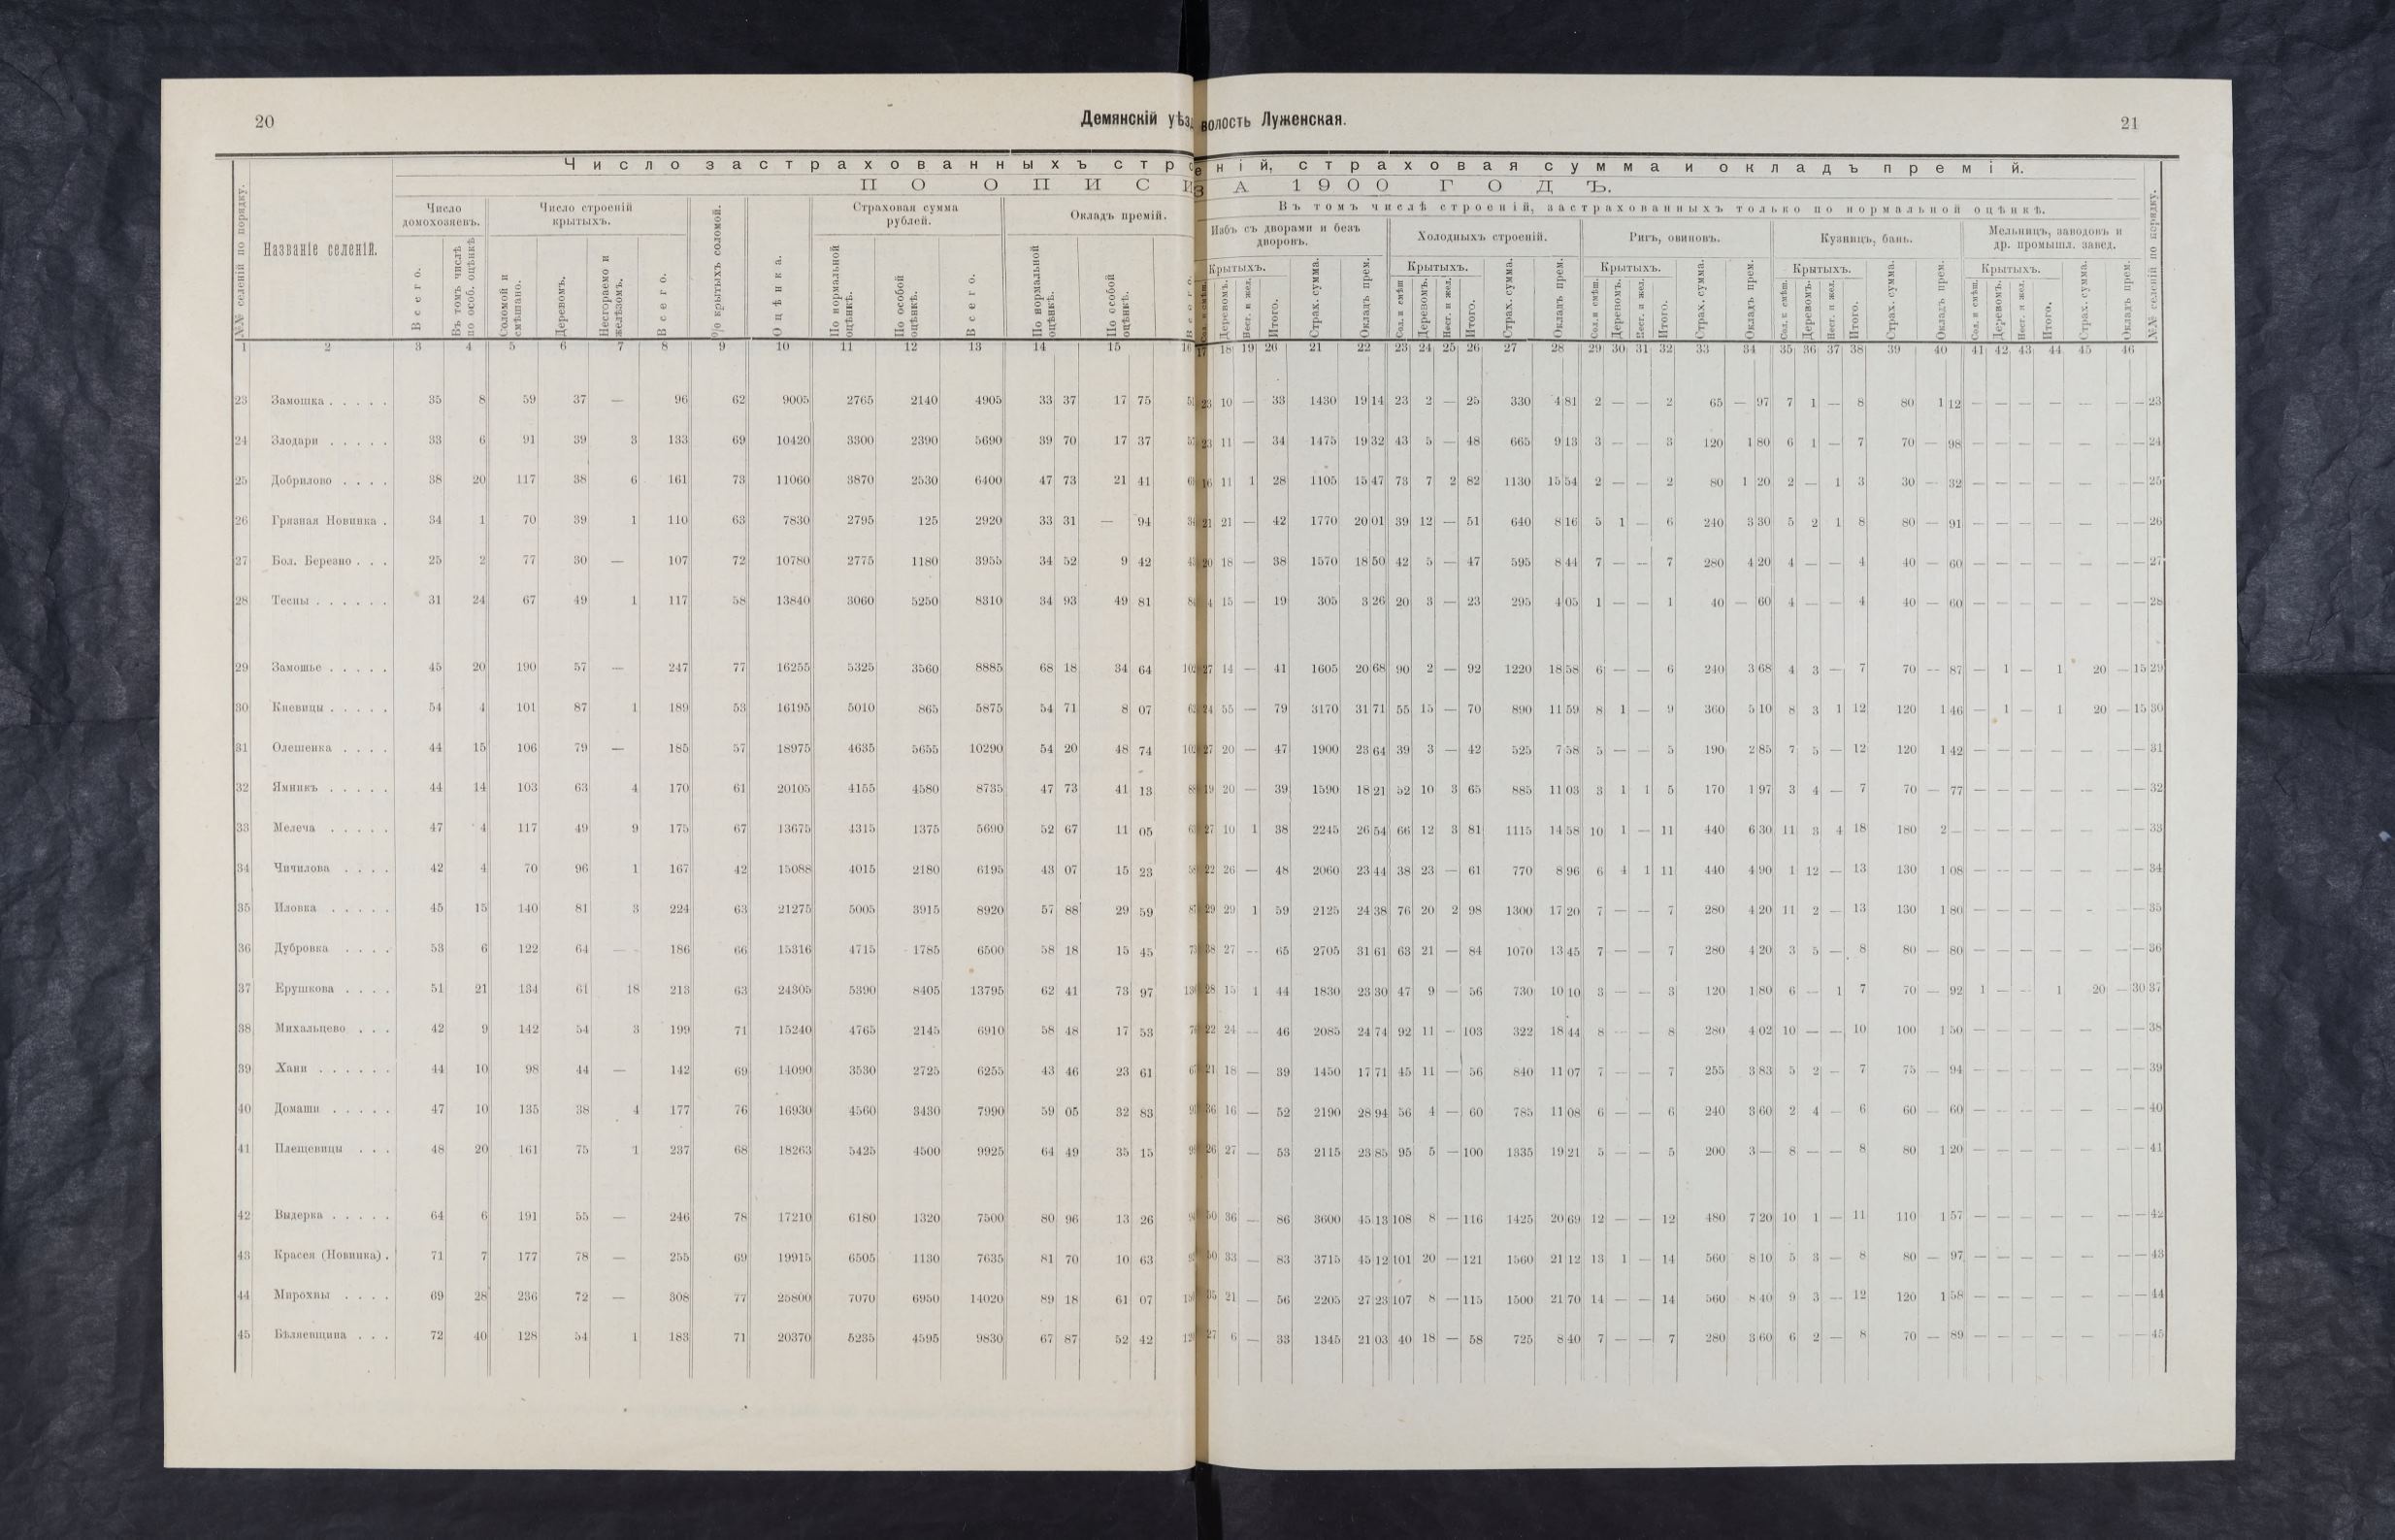 20
Демянскій уѣзд
волость Луженская.
21
Число застрахованныхъ стро
еній, страховая сумма и окладъ премій.
ПО ОПИСИ
ЗА 1900 ГОДЪ.
№№ селеній по порядку.
Названіе селеній.
Число домохозяевъ.
Всего.
Въ томъ числѣ по особ. оцѣнкѣ
Число строеній крытыхъ.
Соломой и смѣшано.
Деревомъ.
Несгораемо и желѣзомъ.
Всего.
% крытыхъ соломой.
Оцѣнка.
Страховая сумма рублей.
По нормальной оцѣнкѣ.
По особой оцѣнкѣ.
Всего.
Окладъ премій.
По нормальной оцѣнкѣ.
По особой оцѣнкѣ.
Всего.
Въ томъ числѣ строеній, застрахованныхъ только по нормальной оцѣнкѣ.
Избъ съ дворами и безъ дворовъ.
Крытыхъ.
Деревомъ.
Несг. и жел.
Итого.
Страх. сумма.
Окладъ прем.
Холодныхъ строеній.
Крытыхъ.
Сол. и смѣш.
Деревомъ.
Несг. и жел.
Итого.
Страх. сумма.
Окладъ прем.
Ригъ, овиновъ.
Крытыхъ.
Сол. и смѣш.
Деревомъ.
Нес. и жел.
Итого.
Страх. сумма.
Окладъ прем.
Кузницъ, бань.
Крытыхъ.
Сол. и смѣш.
Деревомъ.
Несг. и жел.
Итого.
Страх. сумма.
Окладъ прем.
Мельницъ, заводовъ и др. промышл. завед.
Крытыхъ.
Сол. и смѣш.
Деревомъ.
Несг. и жел.
Итого.
Страх. сумма.
Окладъ прем.
№№ селеній по порядку.
1 2 3 4 5 6 7 8 9 10 11 12 13 14 15 16 17 18 19 20 21 22 23 24 25 26 27 28 29 30 31 32 33 34 35 36 37 38 39 40 41 42 43 44 45 46
23 Замошка . . . . . 35 8 59 37 — 96 62 9005 2765 2140 4905 33 37 17 75 23 10 — 33 1430 19 14 23 2 — 25 330 4 81 2 — — 2 65 — 97 7 1 — 8 80 1 12 — — — — — — — 23
24 Злодари . . . . . 33 6 91 39 3 133 69 10420 3300 2390 5690 39 70 17 37 23 11 — 34 1475 19 32 43 5 — 48 665 9 13 3 — — 3 120 1 80 6 1 — 7 70 — 98 — — — — — — — 24
25 Добрилово . . . . 38 20 117 38 6 161 73 11060 3870 2530 6400 47 73 21 41 16 11 1 28 1105 15 47 73 7 2 82 1130 15 54 2 — — 2 80 1 20 2 — 1 3 30 — 32 — — — — — — — 25
26 Грязная Новинка . 34 1 70 39 1 110 63 7830 2795 125 2920 33 31 — 94 21 21 — 42 1770 20 01 39 12 — 51 640 8 16 5 1 — 6 240 3 30 5 2 1 8 80 — 91 — — — — — — — 26
27 Бол. Березно . . . 25 2 77 30 — 107 72 10780 2775 1180 3955 34 52 9 42 20 18 — 38 1570 18 50 42 5 — 47 595 8 44 7 — — 7 280 4 20 4 — — 4 40 — 60 — — — — — — — 27
28 Тесны . . . . . . 31 24 67 49 1 117 58 13840 3060 5250 8310 34 93 49 81 4 15 — 19 305 3 26 20 3 — 23 295 4 05 1 — — 1 40 — 60 4 — — 4 40 — 60 — — — — — — — 28
29 Замошье . . . . . 45 20 190 57 — 247 77 16255 5325 3560 8885 68 18 34 64 102 27 14 — 41 1605 20 68 90 2 — 92 1220 18 58 6 — — 6 240 3 68 4 3 — 7 70 — 87 — 1 — 1 20 — 15 29
30 Кневицы . . . . . 54 4 101 87 1 189 53 16195 5010 865 5875 54 71 8 07 24 55 — 79 3170 31 71 55 15 — 70 890 11 59 8 1 — 9 360 5 10 8 3 1 12 120 1 46 — 1 — 1 20 — 15 30
31 Олешенка . . . . 44 15 106 79 — 185 57 18975 4635 5655 10290 54 20 48 74 102 27 20 — 47 1900 23 64 39 3 — 42 525 7 58 5 — — 5 190 2 85 7 5 — 12 120 1 42 — — — — — — — 31
32 Ямникъ . . . . . 44 14 103 63 4 170 61 20105 4155 4580 8735 47 73 41 13 19 20 — 39 1590 18 21 52 10 3 65 885 11 03 3 1 1 5 170 1 97 3 4 — 7 70 — 77 — — — — — — — 32
33 Мелеча . . . . . 47 4 117 49 9 175 67 13675 4315 1375 5690 52 67 11 05 27 10 1 38 2245 26 54 66 12 3 81 1115 14 58 10 1 — 11 440 6 30 11 3 4 18 180 2 — — — — — — — — 33
34 Чичилова . . . . 42 4 70 96 1 167 42 15088 4015 2180 6195 43 07 15 23 22 26 — 48 2060 23 44 38 23 — 61 770 8 96 6 4 1 11 440 4 90 1 12 — 13 130 1 08 — — — — — — — 34
35 Пловка . . . . . 45 15 140 81 3 224 63 21275 5005 3915 8920 57 88 29 59 29 29 1 59 2125 24 38 76 20 2 98 1300 17 20 7 — — 7 280 4 20 11 2 — 13 130 1 80 — — — — — — — 35
36 Дубровка . . . . 53 6 122 64 — 186 66 15316 4715 1785 6500 58 18 15 45 38 27 — 65 2705 31 61 63 21 — 84 1070 13 45 7 — — 7 280 4 20 3 5 — 8 80 — 80 — — — — — — — 36
37 Ерушкова . . . . 51 21 134 61 18 213 63 24305 5390 8405 13795 62 41 73 97 28 15 1 44 1830 23 30 47 9 — 56 730 10 10 3 — — 3 120 1 80 6 — 1 7 70 — 92 1 — — 1 20 — 30 37
38 Михальцево . . . 42 9 142 54 3 199 71 15240 4765 2145 6910 58 48 17 53 22 24 — 46 2085 24 74 92 11 — 103 322 18 44 8 — — 8 280 4 02 10 — — 10 100 1 50 — — — — — — — 38
39 Хани . . . . . . 44 10 98 44 — 142 69 14090 3530 2725 6255 43 46 23 61 21 18 — 39 1450 17 71 45 11 — 56 840 11 07 7 — — 7 255 3 83 5 2 — 7 75 — 94 — — — — — — — 39
40 Домаши . . . . . 47 10 135 38 4 177 76 16930 4560 3430 7990 59 05 32 83 36 16 — 52 2190 28 94 56 4 — 60 785 11 08 6 — — 6 240 3 60 2 4 — 6 60 — 60 — — — — — — — 40
41 Плещевицы . . . 48 20 161 75 1 237 68 18263 5425 4500 9925 64 49 35 15 26 27 — 53 2115 23 85 95 5 — 100 1335 19 21 5 — — 5 200 3 — 8 — — 8 80 1 20 — — — — — — — 41
42 Выдерка . . . . . 64 6 191 55 — 246 78 17210 6180 1320 7500 80 96 13 26 50 36 — 86 3600 45 13 108 8 — 116 1425 20 69 12 — — 12 480 7 20 10 1 — 11 110 1 57 — — — — — — — 42
43 Красея (Новинка) . 71 7 177 78 — 255 69 19915 6505 1130 7635 81 70 10 63 50 33 — 83 3715 45 12 101 20 — 121 1560 21 12 13 1 — 14 560 8 10 5 3 — 8 80 — 97 — — — — — — — 43
44 Мирохны . . . . 69 28 236 72 — 308 77 25800 7070 6950 14020 89 18 61 07 35 21 — 56 2205 27 23 107 8 — 115 1500 21 70 14 — — 14 560 8 40 9 3 — 12 120 1 58 — — — — — — — 44
45 Бѣляевщина . . . 72 40 128 54 1 183 71 20370 5235 4595 9830 67 87 52 42 27 6 — 33 1345 21 03 40 18 — 58 725 8 40 7 — — 7 280 3 60 6 2 — 8 70 — 89 — — — — — — — 45